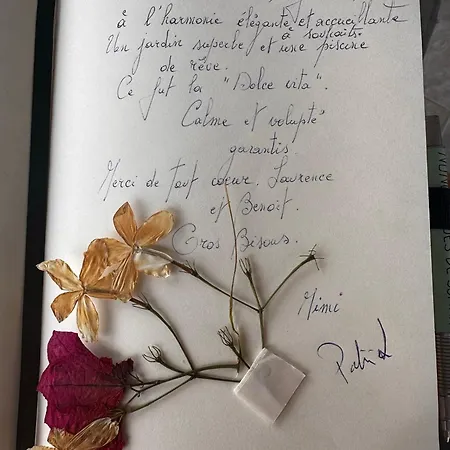 à l'harmonie élégante et accueillante
à souhaits.
Un jardin superbe et une piscine
de rêve.
Ce fut la "Dolce vita".
Calme et volupté
garantis
Merci de tout coeur, Laurence
et Benoit.
Gros Bisous.
Mimi
Patrick